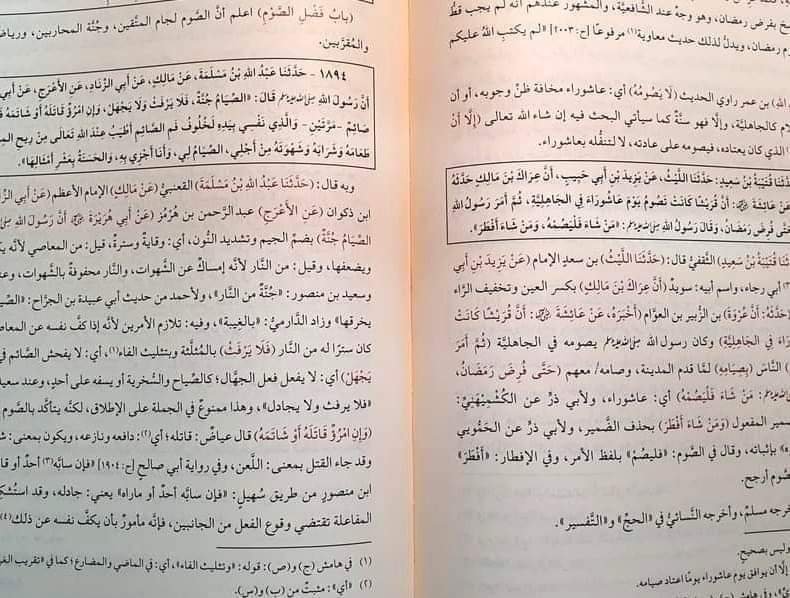 سخ بفرض رمضان، وهو وجهٌ عند الشَّافعيَّة، والمشهور عندهم أنَّه لم يجب قطُّ
رم رمضان، ويدلُّ لذلك حديث معاوية(١) مرفوعًا [ح:٢٠٠٣] «لم يكتب الله عليكم
الله) بن عمر راوي الحديث (لَا يَصُومُهُ) أي: عاشوراء مخافة ظنِّ وجوبه، أو أن
لام كالجاهليَّة، وإلَّا فهو سنَّةٌ كما سيأتي البحث فيه إن شاء الله تعالى (إِلَّا أَنْ
الذي كان يعتاده، فيصومه على عادته، لا لتنفُّله بعاشوراء.
دَّثَنَا قُتَيْبَةُ بْنُ سَعِيدٍ: حَدَّثَنَا اللَّيْثُ، عَنْ يَزِيدَ بْنِ أَبِي حَبِيبٍ، أَنَّ عِرَاكَ بْنَ مَالِكٍ حَدَّثَهُ
عَنْ عَائِشَةَ ﵂: أَنَّ قُرَيْشًا كَانَتْ تَصُومُ يَوْمَ عَاشُورَاءَ فِي الجَاهِلِيَّةِ، ثُمَّ أَمَرَ رَسُولُ اللهِ
حَتَّى فُرِضَ رَمَضَانُ، وَقَالَ رَسُولُ اللهِ ﷺ: «مَنْ شَاءَ فَلْيَصُمْهُ، وَمَنْ شَاءَ أَفْطَرَ».
ثَنَا قُتَيْبَةُ بْنُ سَعِيدٍ) الثَّقفيُّ قال: (حَدَّثَنَا اللَّيْثُ) بن سعدٍ الإمام (عَنْ يَزِيدَ بْنِ أَبِي
أبي رجاء، واسم أبيه: سويدٌ (أَنَّ عِرَاكَ بْنَ مَالِكٍ) بكسر العين وتخفيف الرَّاء
حَدَّثَهُ: أَنَّ عُرْوَةَ) بن الزُّبير بن العوَّام (أَخْبَرَهُ، عَنْ عَائِشَةَ ﵂: أَنَّ قُرَيْشًا كَانَتْ
رَاءَ فِي الجَاهِلِيَّةِ) وكان رسول الله ﷺ يصومه في الجاهليَّة (ثُمَّ أَمَرَ
النَّاس (بِصِيَامِهِ) لمَّا قدم المدينة، وصامه/ معهم (حَتَّى فُرِضَ رَمَضَانُ،
ﷺ: مَنْ شَاءَ فَلْيَصُمْهُ) أي: عاشوراء، ولأبي ذرٍّ عن الكُشْمِيْهَنِيِّ:
سمير المفعول (وَمَنْ شَاءَ أَفْطَرَ) بحذف الضَّمير، ولأبي ذرٍّ عن الحَمُّويي
ه» بإثباته، وقال في الصَّوم: «فليصُمْ» بلفظ الأمر، وفي الإفطار: «أَفْطَرَ»
صَّوم أرجح.
خرجه مسلمٌ، وأخرجه النَّسائيُّ في «الحجِّ» و«التَّفسير».
وليس بصحيحٍ.
إلَّا أن يوافق يوم عاشوراء يومًا اعتاد صيامه.
(بابُ فَضْلِ الصَّوْمِ) اعلم أنَّ الصَّوم لجام المتَّقين، وجُنَّة المحاربين، ورياضة
والمُقرَّبين.
١٨٩٤ - حَدَّثَنَا عَبْدُ اللهِ بْنُ مَسْلَمَةَ، عَنْ مَالِكٍ، عَنْ أَبِي الزِّنَادِ، عَنِ الأَعْرَجِ، عَنْ أَبِي
أَنَّ رَسُولَ اللهِ ﷺ قَالَ: «الصِّيَامُ جُنَّةٌ، فَلَا يَرْفُثْ وَلَا يَجْهَلْ، وَإِنِ امْرُؤٌ قَاتَلَهُ أَوْ شَاتَمَهُ
صَائِمٌ -مَرَّتَيْنِ- وَالَّذِي نَفْسِي بِيَدِهِ لَخُلُوفُ فَمِ الصَّائِمِ أَطْيَبُ عِنْدَ اللهِ تَعَالَى مِنْ رِيحِ
طَعَامَهُ وَشَرَابَهُ وَشَهْوَتَهُ مِنْ أَجْلِي، الصِّيَامُ لِي، وَأَنَا أَجْزِي بِهِ، وَالحَسَنَةُ بِعَشْرِ أَمْثَالِهَا».
وبه قال: (حَدَّثَنَا عَبْدُ اللهِ بْنُ مَسْلَمَةَ) القعنبيُّ (عَنْ مَالِكٍ) الإمام الأعظم (عَنْ أَبِي
ابن ذكوان (عَنِ الأَعْرَجِ) عبد الرَّحمن بن هُرْمُز (عَنْ أَبِي هُرَيْرَةَ ﵁ أَنَّ رَسُولَ اللهِ
الصِّيَامُ جُنَّةٌ) بضمِّ الجيم وتشديد النُّون، أي: وقايةٌ وسترةٌ، قيل: من المعاصي لأنَّه
ويضعفها، وقيل: من النَّار لأنَّه إمساكٌ عن الشَّهوات، والنَّار محفوفةٌ بالشَّهوات،
وسعيد بن منصور: «جُنَّةٌ من النَّار»، ولأحمد من حديث أبي عبيدة بن الجرَّاح:
يخرقها» وزاد الدَّارميُّ: «بالغيبة»، وفيه: تلازم الأمرين لأنَّه إذا كفَّ نفسه عن
كان سترًا له من النَّار (فَلَا يَرْفُثْ) بالمُثلَّثة وبتثليث الفاء(١)، أي: لا يفحش الصَّائم
يَجْهَلْ) أي: لا يفعل فعل الجهَّال؛ كالصِّياح والسُّخرية أو يسفه على أحدٍ، وعند
«فلا يرفث ولا يجادل»، وهذا ممنوعٌ في الجملة على الإطلاق، لكنَّه يتأكَّد بالصَّوم
(وَإِنِ امْرُؤٌ قَاتَلَهُ أَوْ شَاتَمَهُ) قال عياضٌ: قاتله؛ أي(٢): دافعه ونازعه، ويكون بمعنى:
وقد جاء القتل بمعنى: اللَّعن، وفي رواية أبي صالحٍ [ح:١٩٠٤] «فإن سابَّه(٣) أحدٌ أو
ابن منصورٍ من طريق سُهيلٍ: «فإن سابَّه أحدٌ أو ماراه» يعني: جادله، وقد
المفاعلة تقتضي وقوع الفعل من الجانبين، فإنَّه مأمورٌ بأن يكفَّ نفسه عن ذلك(٤)
(١) في هامش (ج) و(ص): قوله: «وبتثليث الفاء»، أي: في الماضي والمضارع؛ كما في «تقريب
(٢) «أي»: مثبتٌ من (ب) و(س).